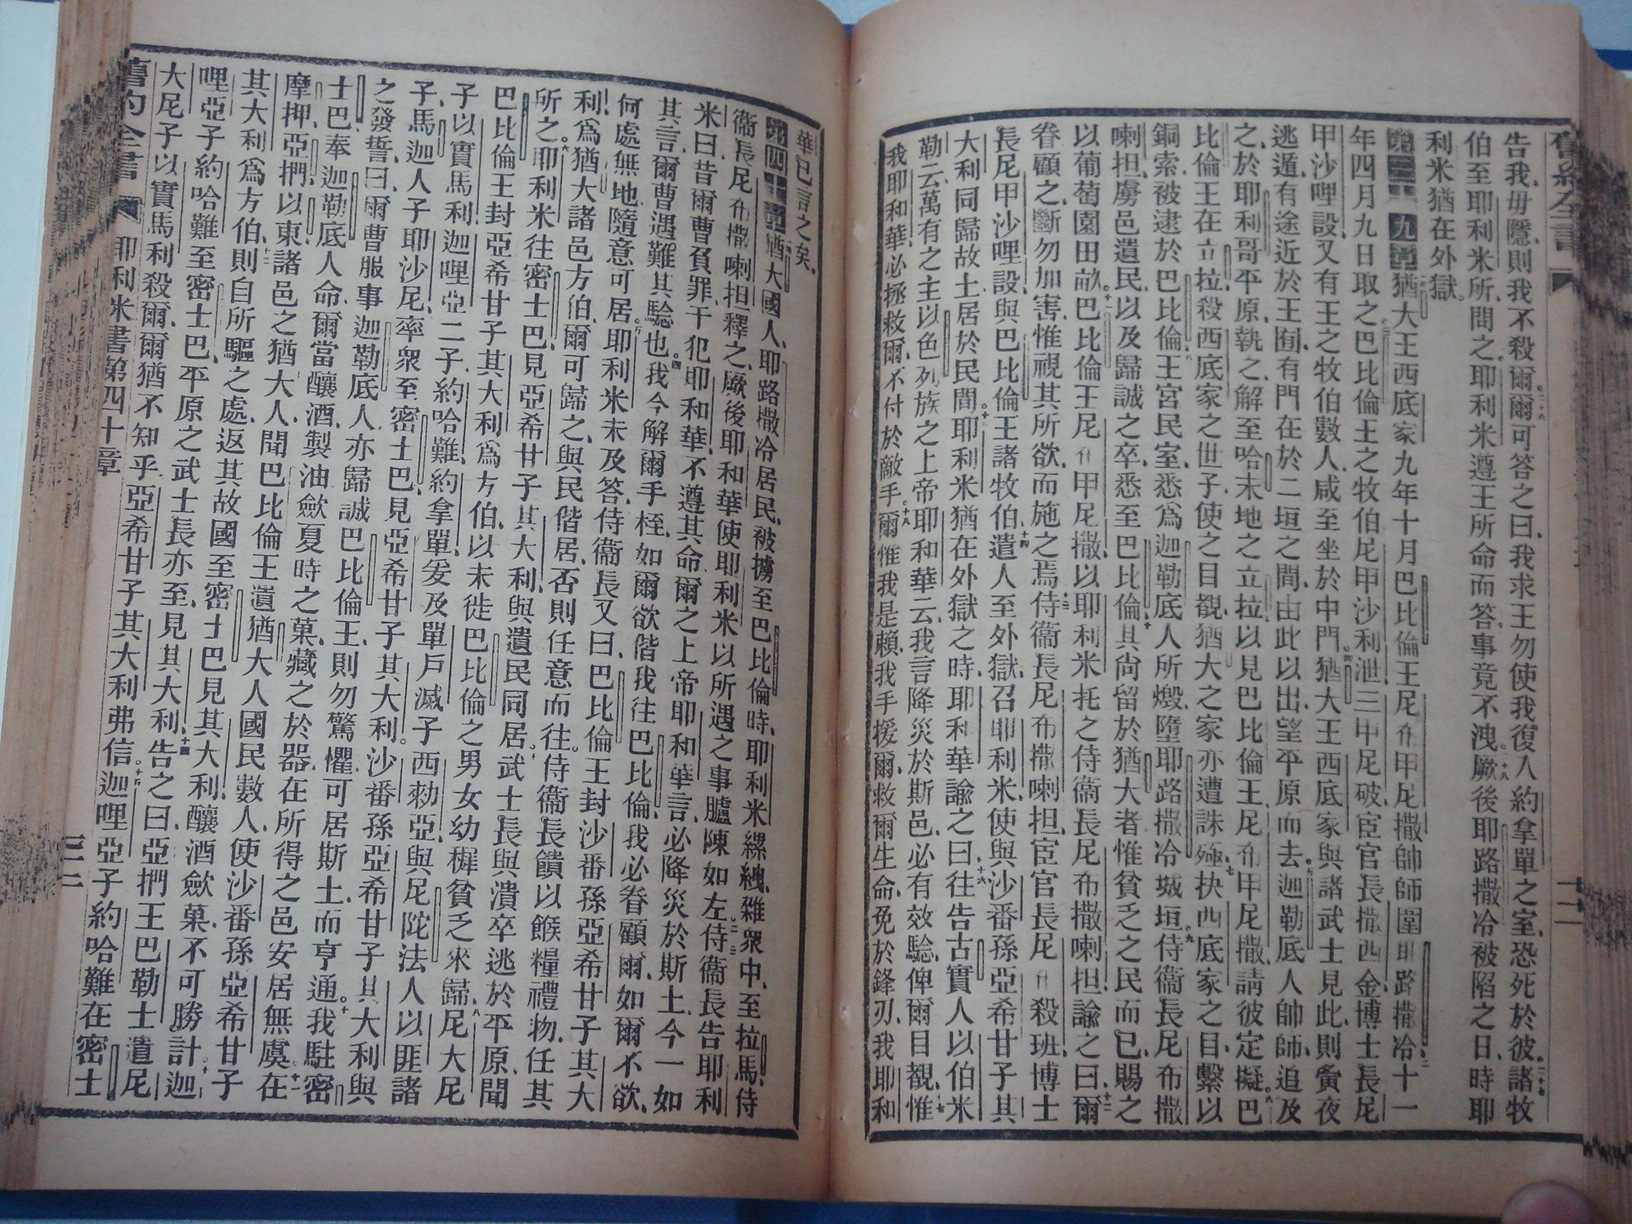 舊約全書
告我毋隱則我不殺爾爾可答之曰我求王勿使我復入約拿單之室恐死於彼諸牧
伯至耶利米所問之耶利米遵王所命而答事竟不洩厥後耶路撒冷被陷之日時耶
利米猶在外獄
第三十九章猶大王西底家九年十月巴比倫王尼布甲尼撒帥師圍耶路撒冷十一
年四月九日取之巴比倫王之牧伯尼甲沙利泄三甲尼破宦官長撒西金博士長尼
甲沙哩設又有王之牧伯數人咸至坐於中門猶大王西底家與諸武士見此則夤夜
逃遁有途近於王囿有門在於二垣之間由此以出望平原而去迦勒底人帥師追及
之於耶利哥平原執之解至哈末地之立拉以見巴比倫王尼布甲尼撒請彼定擬巴
比倫王在立拉殺西底家之世子使之目覩猶大之家亦遭誅殛抉西底家之目繫以
銅索被逮於巴比倫王宮民室悉為迦勒底人所燬墮耶路撒冷城垣侍衞長尼布撒
喇担虜邑遺民以及歸誠之卒悉至巴比倫其尚留於猶大者惟貧乏之民而已賜之
以葡萄園田畝巴比倫王尼布甲尼撒以耶利米托之侍衞長尼布撒喇担諭之曰爾
眷顧之斷勿加害惟視其所欲而施之焉侍衞長尼布撒喇担宦官長尼布殺班博士
長尼甲沙哩設與巴比倫王諸牧伯遣人至外獄召耶利米使與沙番孫亞希甘子其
大利同歸故土居於民間耶利米猶在外獄之時耶和華諭之曰往告古實人以伯米
勒云萬有之主以色列族之上帝耶和華云我言降災於斯邑必有效驗俾爾目覩惟
我耶和華必拯救爾不付於敵手爾惟我是賴我手援爾救爾生命免於鋒刃我耶和
華已言之矣
第四十章猶大國人耶路撒冷居民被擄至巴比倫時耶利米縲絏雜衆中至拉馬侍
衞長尼布撒喇担釋之厥後耶和華使耶利米以所遇之事臚陳如左侍衞長告耶利
米曰昔爾曹負罪干犯耶和華不遵其命爾之上帝耶和華言必降災於斯土今一如
其言爾曹遇難其驗也我今解爾手桎如爾欲偕我往巴比倫我必眷顧爾如爾不欲
何處無地隨意可居耶利米未及答侍衞長又曰巴比倫王封沙番孫亞希甘子其大
利爲猶大諸邑方伯爾可歸之與民偕居否則任意而往侍衞長饋以餱糧禮物任其
所之耶利米往密士巴見亞希甘子其大利與遺民同居武士長與潰卒逃於平原聞
巴比倫王封亞希甘子其大利爲方伯以未徙巴比倫之男女幼穉貧乏來歸尼大尼
子以實馬利迦哩亞二子約哈難約拿單爰及單戶滅子西勑亞與尼陀法人以匪諸
子馬迦人子耶沙尼率衆至密士巴見亞希甘子其大利沙番孫亞希甘子其大利與
之發誓曰爾曹服事迦勒底人亦歸誠巴比倫王則勿驚懼可居斯土而亨通我駐密
士巴奉迦勒底人命爾當釀酒製油歛夏時之菓藏之於器在所得之邑安居無虞在
摩押亞捫以東諸邑之猶大人聞巴比倫王遺猶大人國民數人使沙番孫亞希甘子
其大利爲方伯則自所驅之處返其故國至密士巴見其大利釀酒歛菓不可勝計迦
哩亞子約哈難至密士巴平原之武士長亦至見其大利告之曰亞捫王巴勒士遣尼
大尼子以實馬利殺爾爾猶不知乎亞希甘子其大利弗信迦哩亞子約哈難在密士
舊約全書 耶利米書第四十章 三二